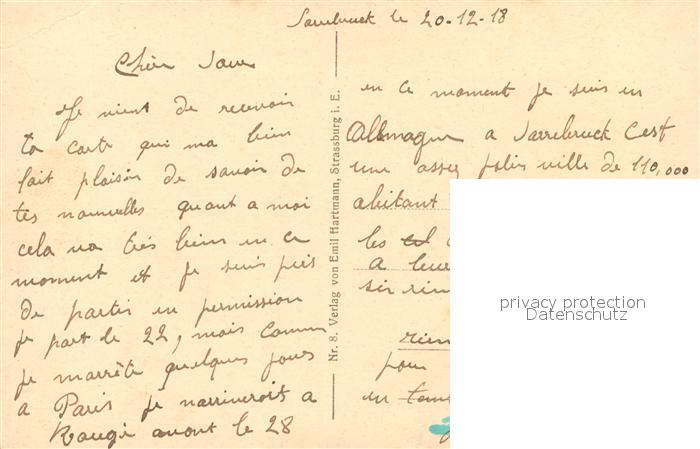 Sarrebruck le 20-12-18
Cher
Je vient de recevoir
ta carte qui ma bien
fait plaisir de savoir de
tes nouvelles quant a moi
cela va très bien en ce
moment et je suis près
de partir en permission
je part le 22, mais comme
je marrête quelques jours
a Paris je narriverois a
Rougé avant le 28
Nr. 8. Verlag von Emil Hartmann, Strassburg i. E.
en ce moment je suis en
Allemagne a Sarrebruck Cest
une assez jolie ville de 110,000
abitant
les
a leur
rien
pour
en
privacy protection
Datenschutz